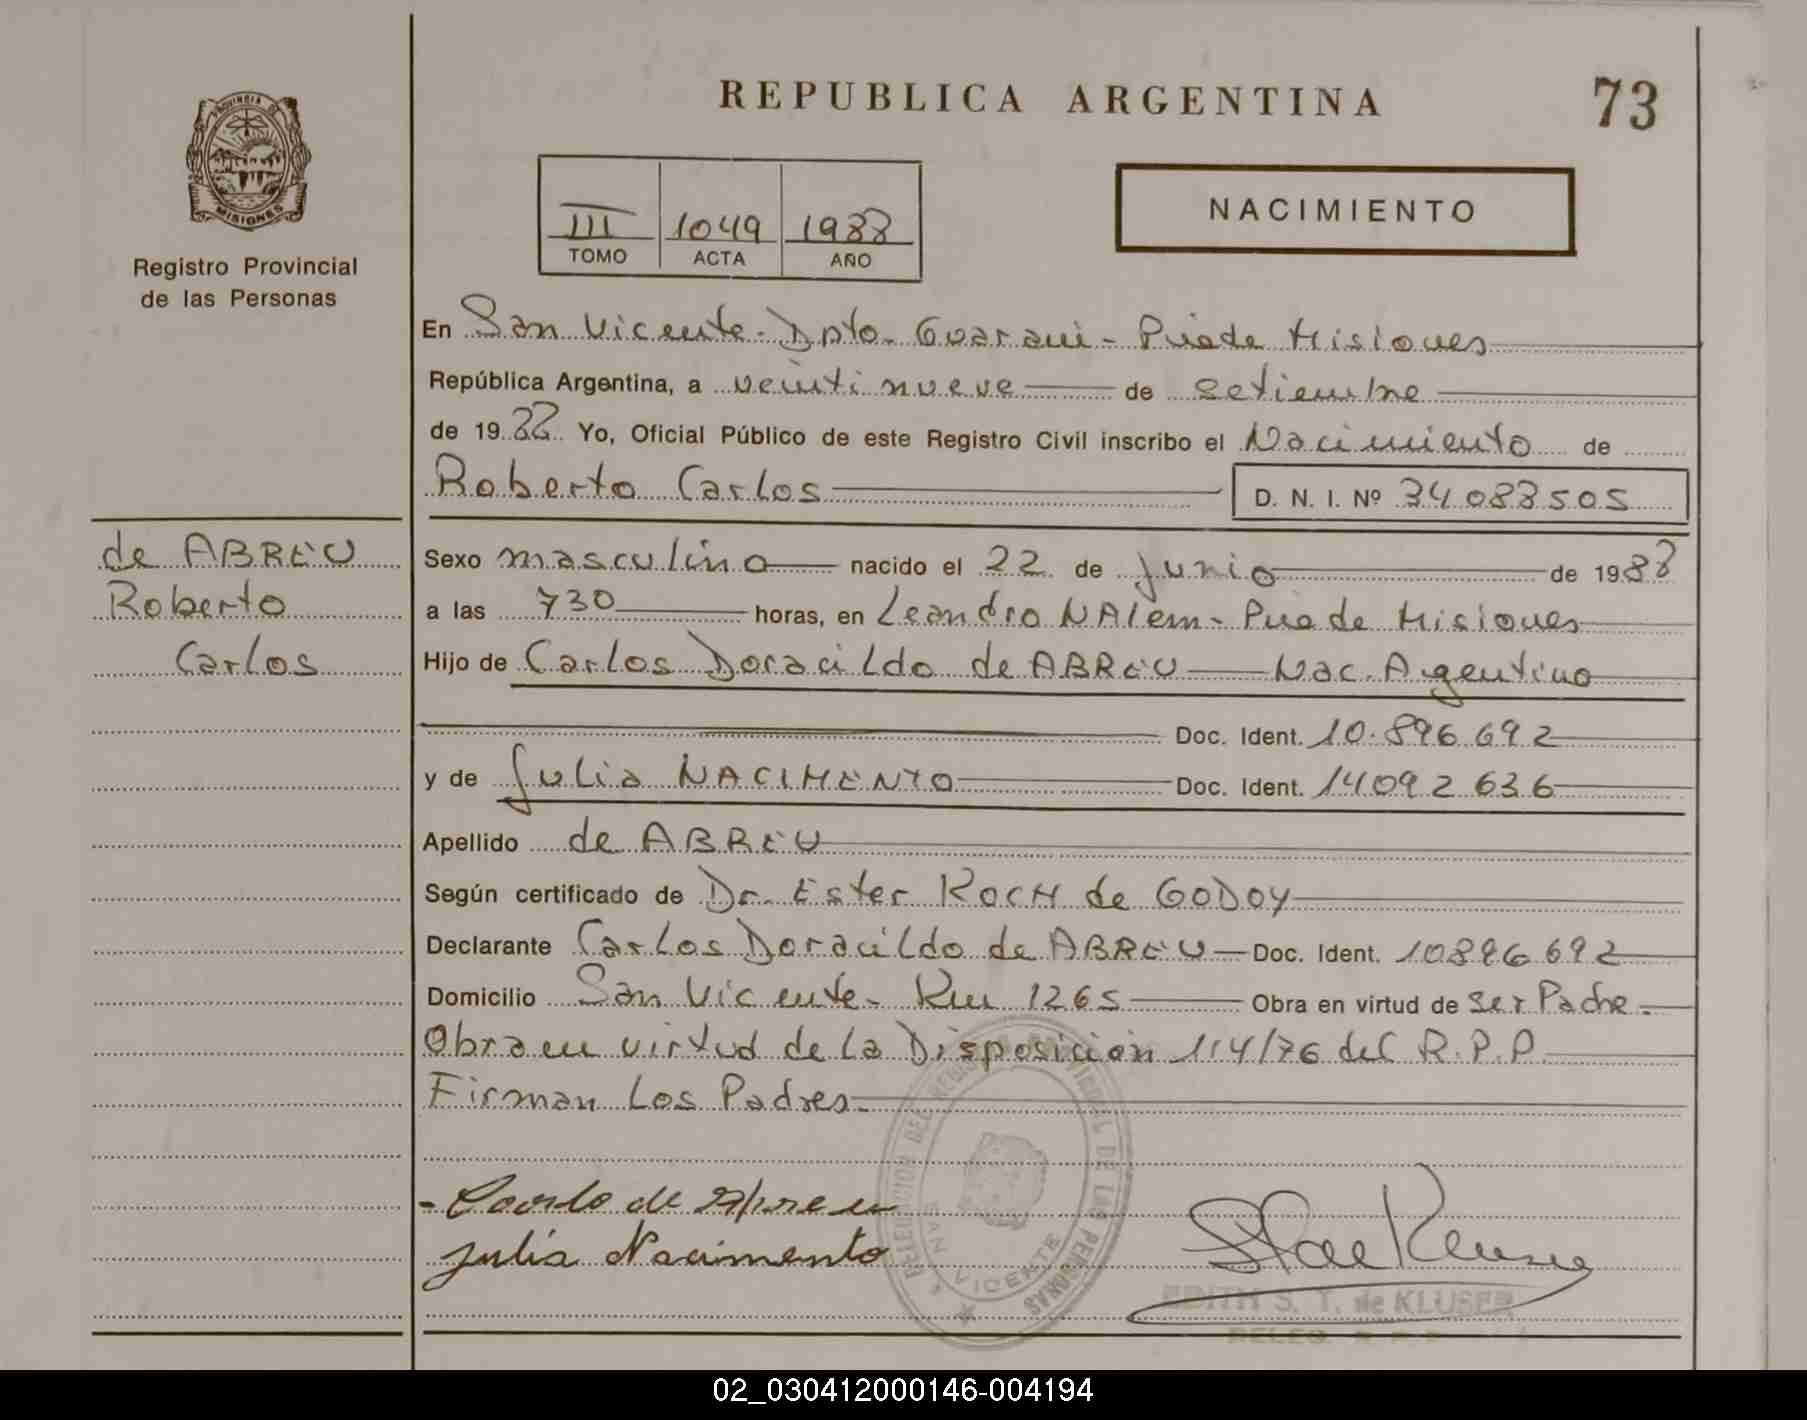 REPUBLICA ARGENTINA
73
PROVINCIA DE
MISIONES
Registro Provincial
de las Personas
III 1049 1988
TOMO ACTA AÑO
NACIMIENTO
En San Vicente - Dpto. Guarani - Pciade Misiones
República Argentina, a veinti nueve de setiembre
de 1988 Yo, Oficial Público de este Registro Civil inscribo el Nacimiento de
Roberto Carlos D. N. I. Nº 34088505
de ABREU
Roberto
Carlos
Sexo masculino nacido el 22 de Junio de 1988
a las 730 horas, en Leandro NAlem - Pciade Misiones
Hijo de Carlos Doracildo de ABREU Nac. Argentino
Doc. Ident. 10.896.692
y de Julia NACIMENTO Doc. Ident. 14092636
Apellido de ABREU
Según certificado de Dr. Ester KOCH de GODOY
Declarante Carlos Doracildo de ABREU Doc. Ident. 10896692
Domicilio San Vicente - Km 1265 Obra en virtud de ser Padre.
Obra en virtud de la Disposición 114/76 del R.P.P.
Firman Los Padres.
Julia Nacimento
SAN VICENTE
EDITH S. T. de KLUSER
DELEG. R. P. P.
02_030412000146-004194